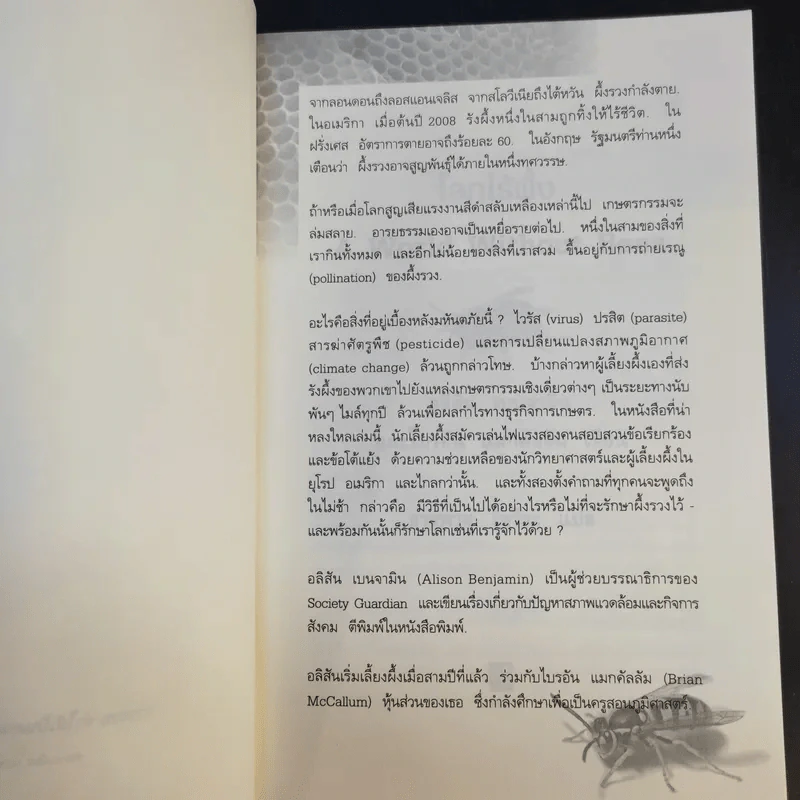 จากลอนดอนถึงลอสแอนเจลิส จากสโลวีเนียถึงไต้หวัน ผึ้งรวงกำลังตาย.
ในอเมริกา เมื่อต้นปี 2008 รังผึ้งหนึ่งในสามถูกทิ้งให้ไร้ชีวิต. ใน
ฝรั่งเศส อัตราการตายอาจถึงร้อยละ 60. ในอังกฤษ รัฐมนตรีท่านหนึ่ง
เตือนว่า ผึ้งรวงอาจสูญพันธุ์ได้ภายในหนึ่งทศวรรษ.
ถ้าหรือเมื่อโลกสูญเสียแรงงานสีดำสลับเหลืองเหล่านี้ไป เกษตรกรรมจะ
ล่มสลาย. อารยธรรมเองอาจเป็นเหยื่อรายต่อไป. หนึ่งในสามของสิ่งที่
เรากินทั้งหมด และอีกไม่น้อยของสิ่งที่เราสวม ขึ้นอยู่กับการถ่ายเรณู
(pollination) ของผึ้งรวง.
อะไรคือสิ่งที่อยู่เบื้องหลังมหันตภัยนี้ ? ไวรัส (virus) ปรสิต (parasite)
สารฆ่าศัตรูพืช (pesticide) และการเปลี่ยนแปลงสภาพภูมิอากาศ
(climate change) ล้วนถูกกล่าวโทษ. บ้างกล่าวหาผู้เลี้ยงผึ้งเองที่ส่ง
รังผึ้งของพวกเขาไปยังแหล่งเกษตรกรรมเชิงเดี่ยวต่างๆ เป็นระยะทางนับ
พันๆ ไมล์ทุกปี ล้วนเพื่อผลกำไรทางธุรกิจการเกษตร. ในหนังสือที่น่า
หลงใหลเล่มนี้ นักเลี้ยงผึ้งสมัครเล่นไฟแรงสองคนสอบสวนข้อเรียกร้อง
และข้อโต้แย้ง ด้วยความช่วยเหลือของนักวิทยาศาสตร์และผู้เลี้ยงผึ้งใน
ยุโรป อเมริกา และไกลกว่านั้น. และทั้งสองตั้งคำถามที่ทุกคนจะพูดถึง
ในไม่ช้า กล่าวคือ มีวิธีที่เป็นไปได้อย่างไรหรือไม่ที่จะรักษาผึ้งรวงไว้ -
และพร้อมกันนั้นก็รักษาโลกเช่นที่เรารู้จักไว้ด้วย ?
อลิสัน เบนจามิน (Alison Benjamin) เป็นผู้ช่วยบรรณาธิการของ
Society Guardian และเขียนเรื่องเกี่ยวกับปัญหาสภาพแวดล้อมและกิจการ
สังคม ตีพิมพ์ในหนังสือพิมพ์.
อลิสันเริ่มเลี้ยงผึ้งเมื่อสามปีที่แล้ว ร่วมกับไบรอัน แมกคัลลัม (Brian
McCallum) หุ้นส่วนของเธอ ซึ่งกำลังศึกษาเพื่อเป็นครูสอนภูมิศาสตร์